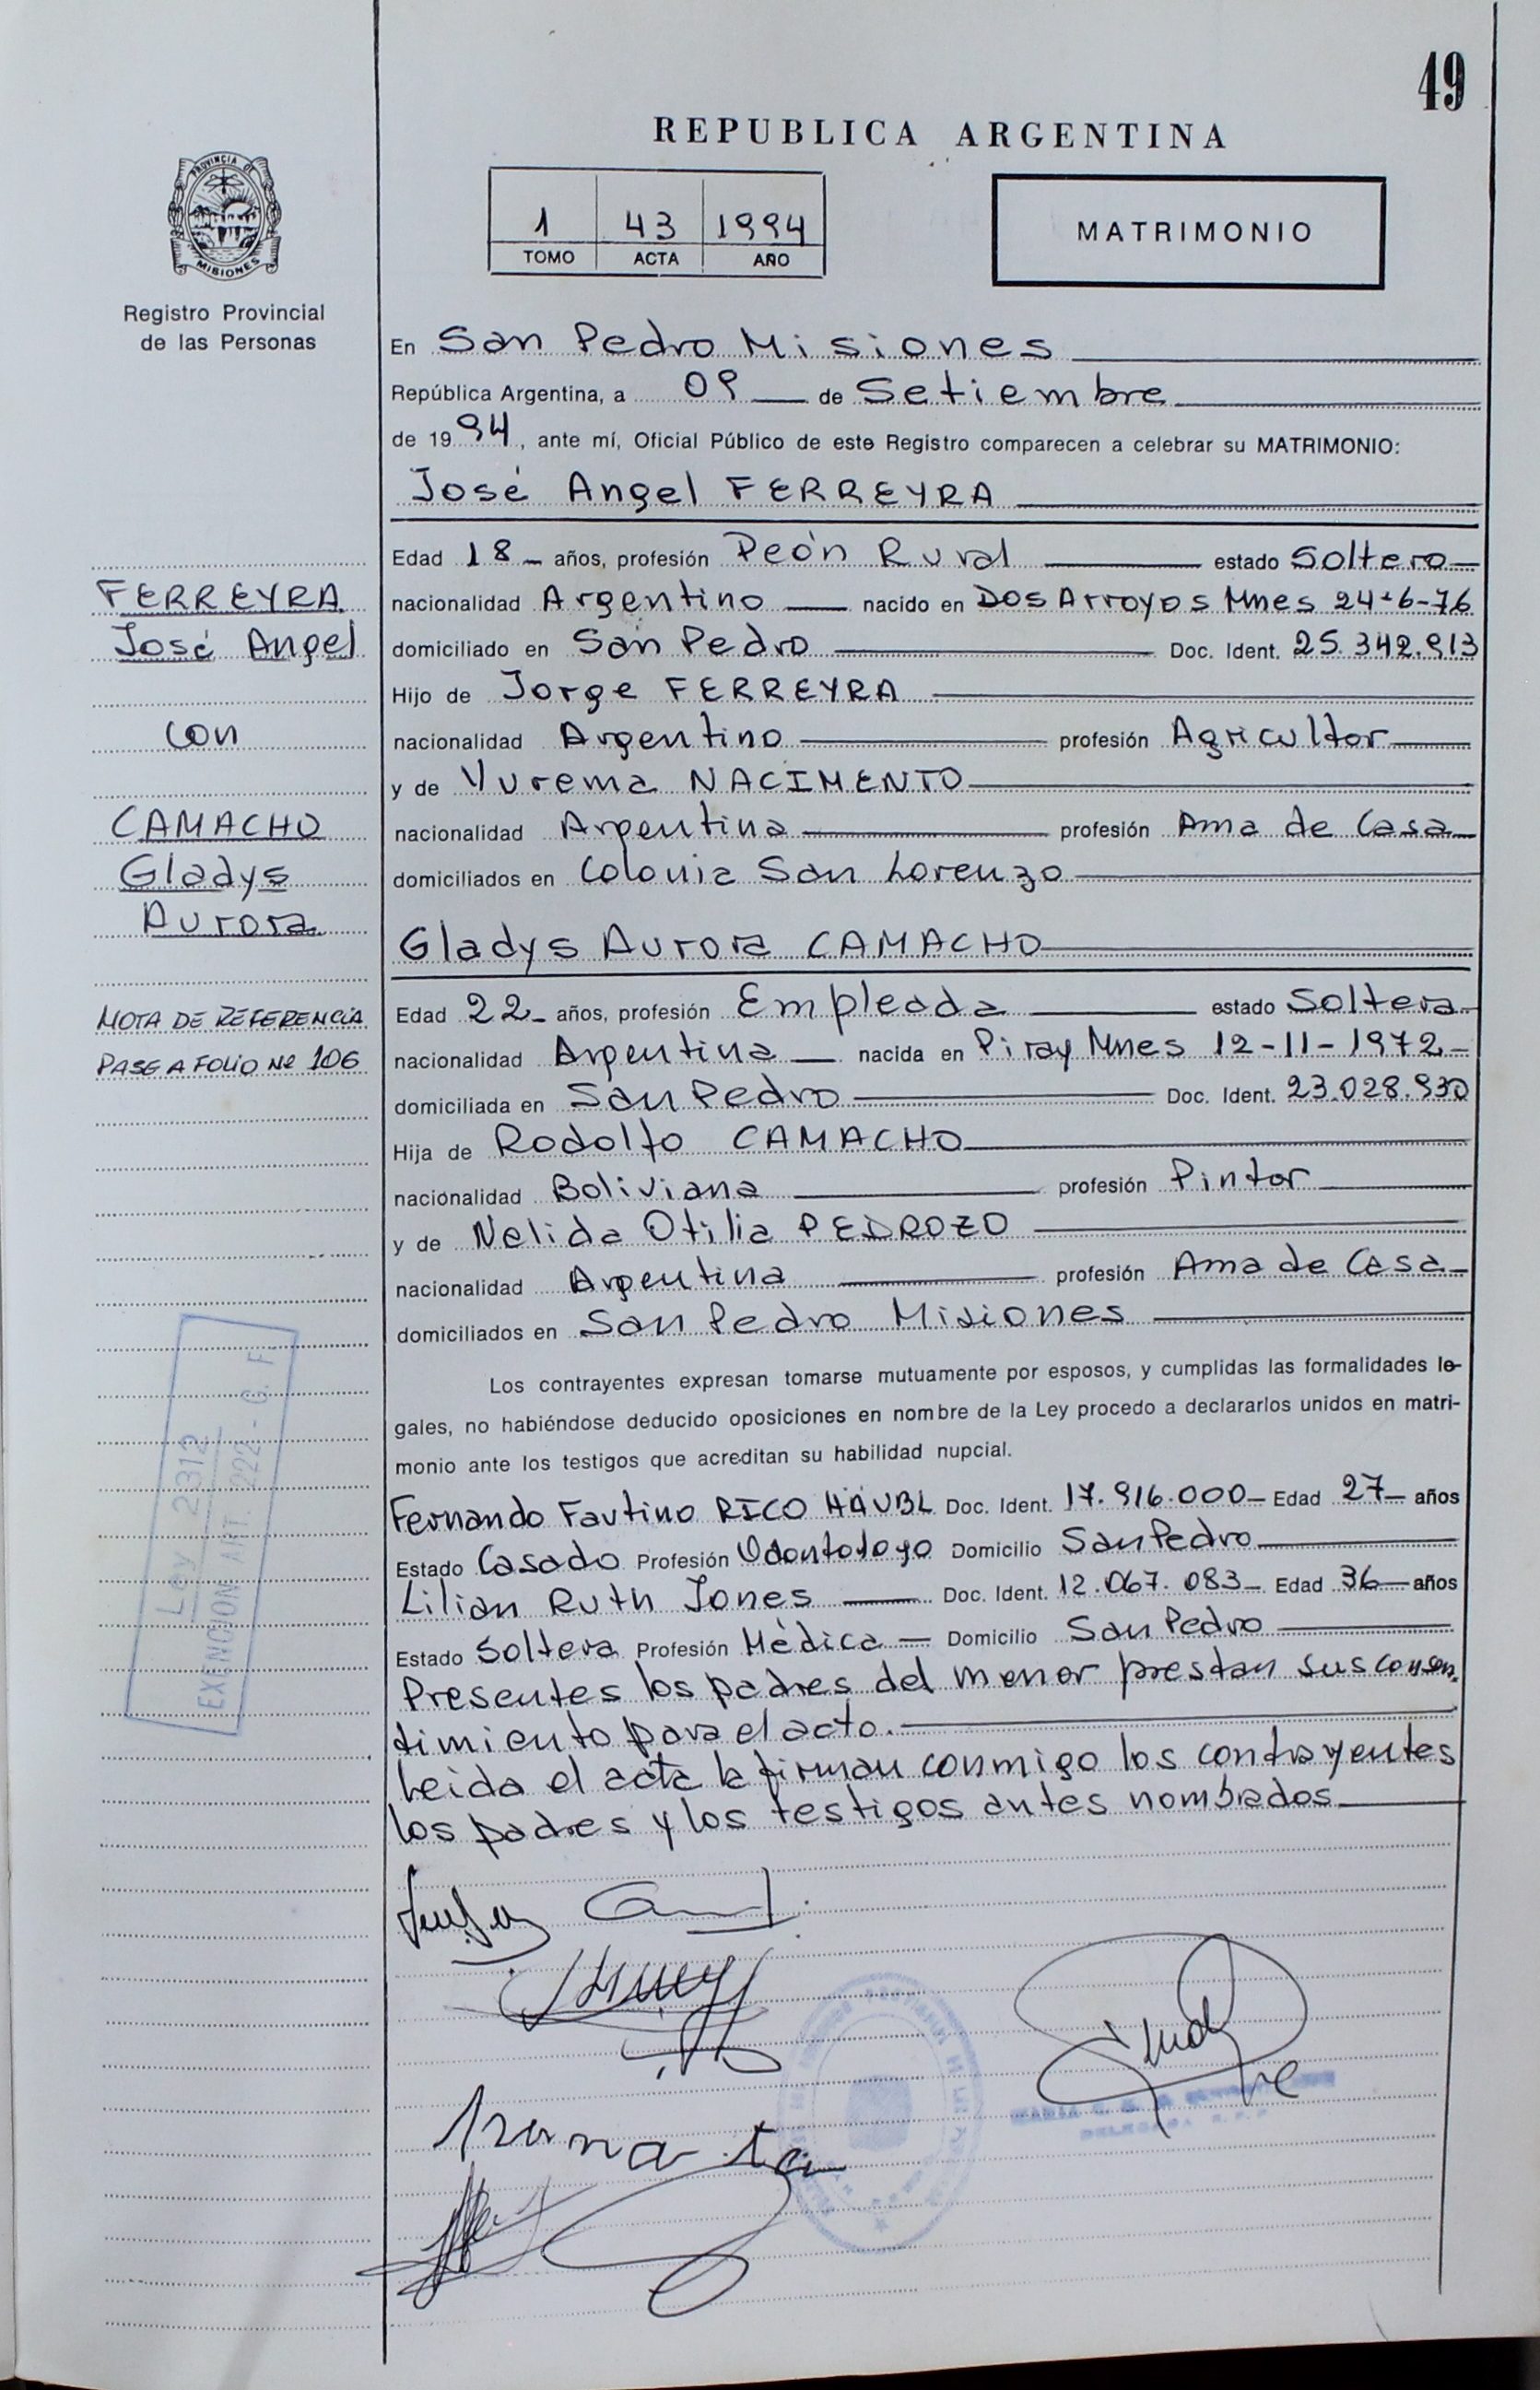 49
REPUBLICA ARGENTINA
PROVINCIA DE
MISIONES
Registro Provincial
de las Personas
1 43 1994
TOMO ACTA AÑO
MATRIMONIO
En San Pedro Misiones
República Argentina, a 09 de Setiembre
de 1994, ante mí, Oficial Público de este Registro comparecen a celebrar su MATRIMONIO:
José Angel FERREYRA
Edad 18 años, profesión Peón Rural estado Soltero
nacionalidad Argentino nacido en Dos Arroyos Mnes 24-6-76
domiciliado en San Pedro Doc. Ident. 25.342.913
Hijo de Jorge FERREYRA
nacionalidad Argentino profesión Agricultor
y de Yurema NACIMENTO
nacionalidad Argentina profesión Ama de Casa
domiciliados en Colonia San Lorenzo
Gladys Aurora CAMACHO
Edad 22 años, profesión Empleada estado Soltera
nacionalidad Argentina nacida en Piray Mnes 12-11-1972
domiciliada en San Pedro Doc. Ident. 23.028.930
Hija de Rodolfo CAMACHO
nacionalidad Boliviana profesión Pintor
y de Nelida Otilia PEDROZO
nacionalidad Argentina profesión Ama de Casa
domiciliados en San Pedro Misiones
Los contrayentes expresan tomarse mutuamente por esposos, y cumplidas las formalidades le-
gales, no habiéndose deducido oposiciones en nombre de la Ley procedo a declararlos unidos en matri-
monio ante los testigos que acreditan su habilidad nupcial.
Fernando Fautino RICO HAUBL Doc. Ident. 17.916.000 Edad 27 años
Estado Casado Profesión Odontologo Domicilio San Pedro
Lilian Ruth Jones Doc. Ident. 12.067.083 Edad 36 años
Estado Soltera Profesión Médica Domicilio San Pedro
Presentes los padres del menor prestan sus consen-
timiento para el acto.
Leida el acta la firman conmigo los contrayentes
los padres y los testigos antes nombrados
FERREYRA
José Angel
con
CAMACHO
Gladys
Aurora
NOTA DE REFERENCIA
PASE A FOLIO Nº 106
Ley 2312
EXENCION ART. 222 - C. F.